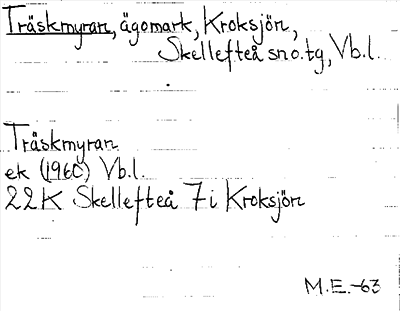 Träskmyran, ägomark, Kroksjön,
Skellefteå sn o. tg, Vb. l.
Träskmyran
ek (1960) Vb. l.
22K Skellefteå 7i Kroksjön
M.E. -63